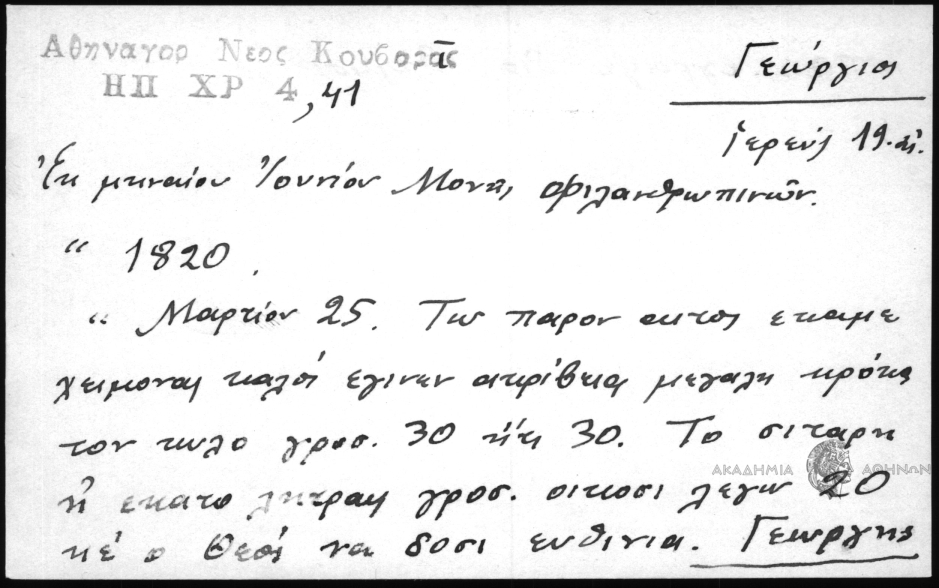 Αθηναγορ Νεος Κουβαρᾶς
ΗΠ ΧΡ 4, 41
Γεώργιος
ἱερεύς 19. αἰ.
Ἐκ μηναίου Ἰουνίου Μονῆς Φιλανθρωπινῶν.
“ 1820.
“ Μαρτίου 25. Τω παρον ετος εκαμε
χειμονας καλοί εγινεν ακρίβεια μεγαλη
τον κυλο γροσ. 30 ήκ 30. Το σιταρη
ἡ εκατο λητραις γροσ. οικοσι λεγω 20
κέ ο Θεός να δοσι ευθινια. Γεώργης
ΑΚΑΔΗΜΙΑ ΑΘΗΝΩΝ